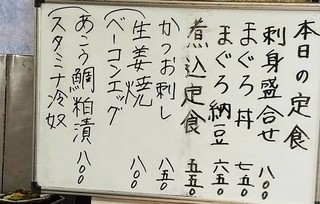 本日の定食
刺身盛合せ 八〇〇
まぐろ丼 七五〇
まぐろ納豆 六五〇
煮込定食 五五〇
かつお刺し 八五〇
生姜焼 八〇〇
(ベーコンエッグ
あこう鯛粕漬 八〇〇
(スタミナ冷奴